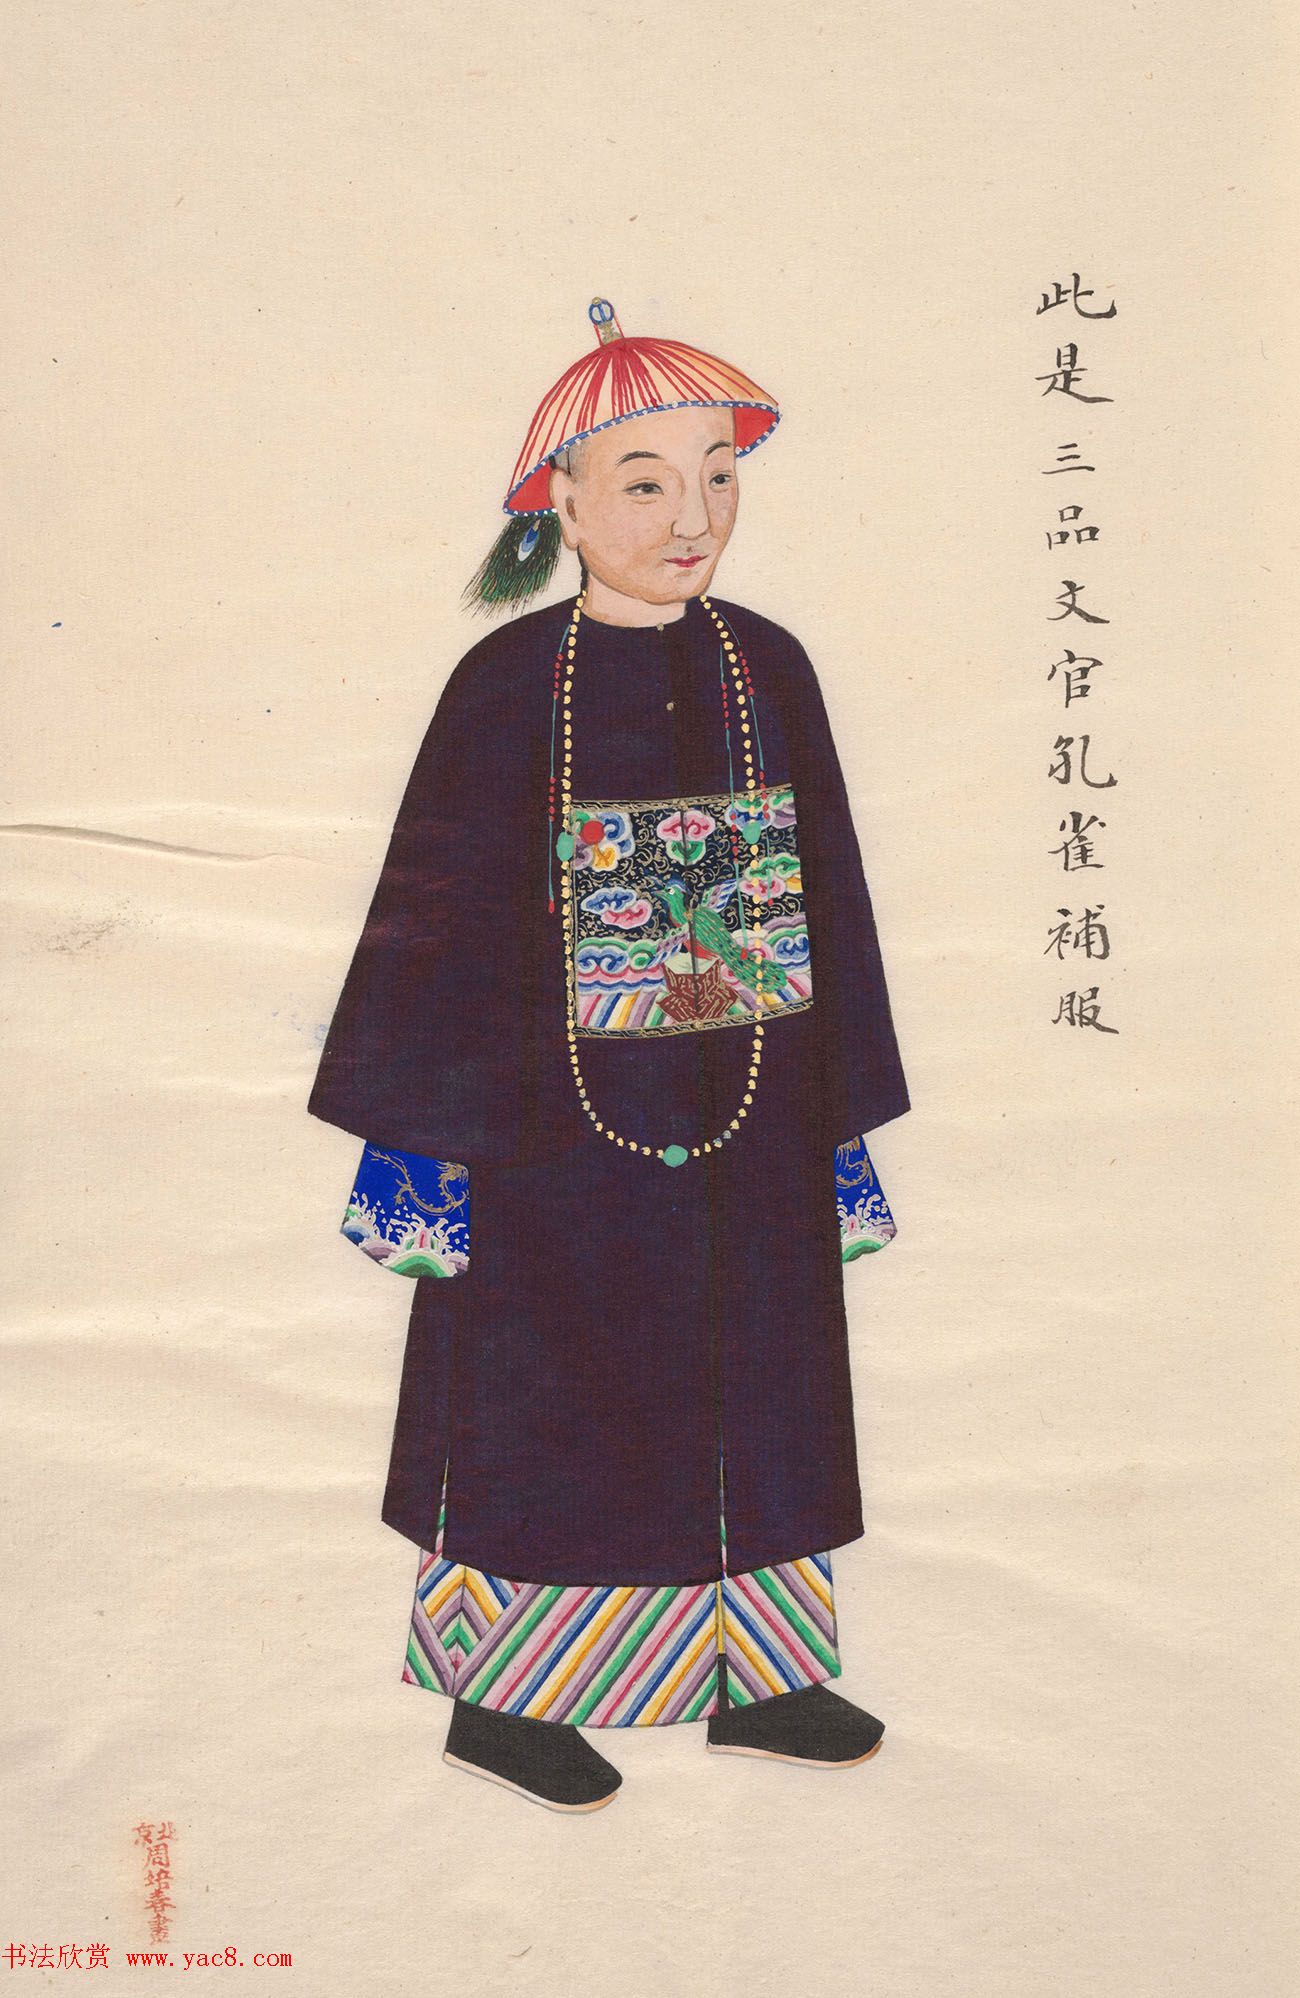 此是三品文官孔雀補服
北京
周培春畫
书法欣赏 www.yac8.com